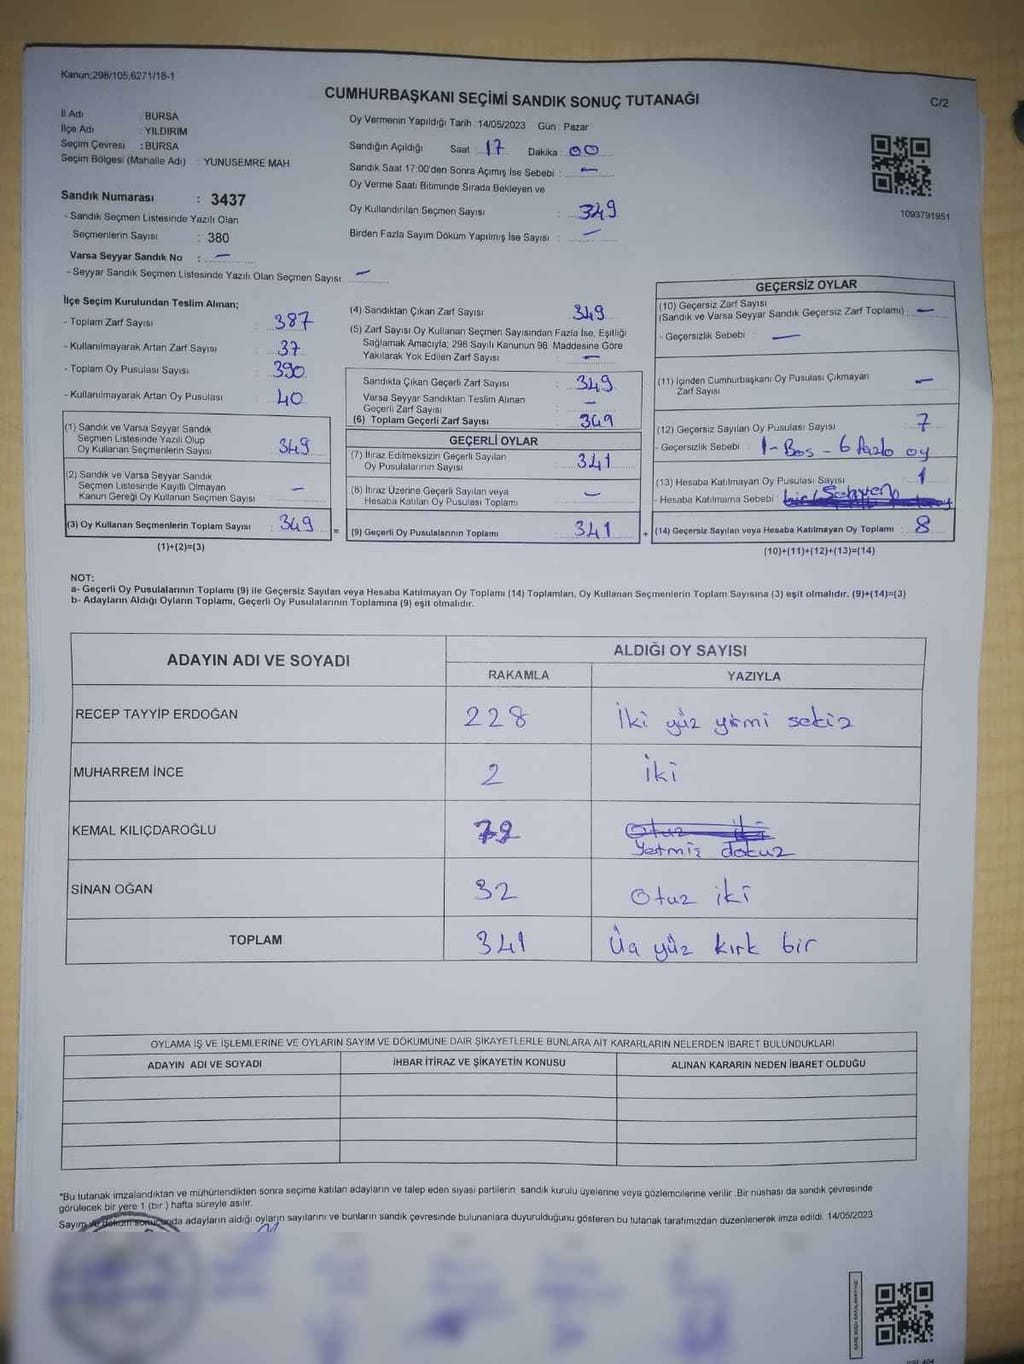 Kanun;298/105,6271/18-1
CUMHURBAŞKANI SEÇİMİ SANDIK SONUÇ TUTANAĞI
C/2
İl Adı BURSA
İlçe Adı : YILDIRIM
Seçim Çevresi : BURSA
Seçim Bölgesi (Mahalle Adı) : YUNUSEMRE MAH
Oy Vermenin Yapıldığı Tarih :14/05/2023 Gün : Pazar
Sandığın Açıldığı Saat : 17 Dakika : 00
Sandık Saat 17:00'den Sonra Açımış İse Sebebi : —
Oy Verme Saati Bitiminde Sırada Bekleyen ve
Oy Kullandırılan Seçmen Sayısı : 349
Birden Fazla Sayım Döküm Yapılmış İse Sayısı : —
1093791951
Sandık Numarası : 3437
- Sandık Seçmen Listesinde Yazılı Olan
Seçmenlerin Sayısı : 380
Varsa Seyyar Sandık No : —
- Seyyar Sandık Seçmen Listesinde Yazılı Olan Seçmen Sayısı —
İlçe Seçim Kurulundan Teslim Alınan;
- Toplam Zarf Sayısı 387
- Kullanılmayarak Artan Zarf Sayısı 37
- Toplam Oy Pusulası Sayısı 390
- Kullanılmayarak Artan Oy Pusulası 40
(1) Sandık ve Varsa Seyyar Sandık
Seçmen Listesinde Yazılı Olup
Oy Kullanan Seçmenlerin Sayısı 349
(2) Sandık ve Varsa Seyyar Sandık
Seçmen Listesinde Kayıtlı Olmayan
Kanun Gereği Oy Kullanan Seçmen Sayısı —
(3) Oy Kullanan Seçmenlerin Toplam Sayısı 349 =
(1)+(2)=(3)
(4) Sandıktan Çıkan Zarf Sayısı 349
(5) Zarf Sayısı Oy Kullanan Seçmen Sayısından Fazla İse, Eşitliği
Sağlamak Amacıyla; 298 Sayılı Kanunun 98. Maddesine Göre
Yakılarak Yok Edilen Zarf Sayısı —
Sandıkta Çıkan Geçerli Zarf Sayısı 349
Varsa Seyyar Sandıktan Teslim Alınan
Geçerli Zarf Sayısı —
(6) Toplam Geçerli Zarf Sayısı 349
GEÇERLİ OYLAR
(7) İtiraz Edilmeksizin Geçerli Sayılan
Oy Pusulalarının Sayısı 341
(8) İtiraz Üzerine Geçerli Sayılan veya
Hesaba Katılan Oy Pusulası Toplamı —
(9) Geçerli Oy Pusulalarının Toplamı 341 +
GEÇERSİZ OYLAR
(10) Geçersiz Zarf Sayısı
(Sandık ve Varsa Seyyar Sandık Geçersiz Zarf Toplamı) —
- Geçersizlik Sebebi : —
(11) İçinden Cumhurbaşkanı Oy Pusulası Çıkmayan
Zarf Sayısı —
(12) Geçersiz Sayılan Oy Pusulası Sayısı 7
- Geçersizlik Sebebi : 1-Boş - 6 fazla oy
(13) Hesaba Katılmayan Oy Pusulası Sayısı 1
- Hesaba Katılmama Sebebi :
(14) Geçersiz Sayılan veya Hesaba Katılmayan Oy Toplamı 8
(10)+(11)+(12)+(13)=(14)
NOT:
a- Geçerli Oy Pusulalarının Toplamı (9) ile Geçersiz Sayılan veya Hesaba Katılmayan Oy Toplamı (14) Toplamları, Oy Kullanan Seçmenlerin Toplam Sayısına (3) eşit olmalıdır. (9)+(14)=(3)
b- Adayların Aldığı Oyların Toplamı, Geçerli Oy Pusulalarının Toplamına (9) eşit olmalıdır.
ADAYIN ADI VE SOYADI
ALDIĞI OY SAYISI
RAKAMLA YAZIYLA
RECEP TAYYİP ERDOĞAN 228 İki yüz yirmi sekiz
MUHARREM İNCE 2 iki
KEMAL KILIÇDAROĞLU 79 Otuz iki
Yetmiş dokuz
SİNAN OĞAN 32 Otuz iki
TOPLAM 341 Üç yüz kırk bir
OYLAMA İŞ VE İŞLEMLERİNE VE OYLARIN SAYIM VE DÖKÜMÜNE DAİR ŞİKAYETLERLE BUNLARA AİT KARARLARIN NELERDEN İBARET BULUNDUKLARI
ADAYIN ADI VE SOYADI İHBAR İTİRAZ VE ŞİKAYETİN KONUSU ALINAN KARARIN NEDEN İBARET OLDUĞU
*Bu tutanak imzalandıktan ve mühürlendikten sonra seçime katılan adayların ve talep eden siyasi partilerin sandık kurulu üyelerine veya gözlemcilerine verilir .Bir nüshası da sandık çevresinde
görülecek bir yere 1 (bir ) hafta süreyle asılır.
Sayım ve döküm sonucunda adayların aldığı oyların sayılarını ve bunların sandık çevresinde bulunanlara duyurulduğunu gösteren bu tutanak tarafımızdan düzenlenerek imza edildi. 14/05/2023